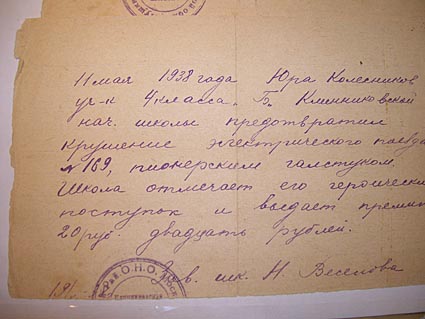 11 мая 1938 года Юра Колесников
уч-к 4 класса. Б. Клинниковской
нач. школы предотвратил
крушение электрического поезда
№ 169, пионерским галстуком.
Школа отмечает его героический
поступок и выдает премию
20 руб. двадцать рублей.
Зав. шк. Н. Веселова
Рай. О.Н.О. МОСК